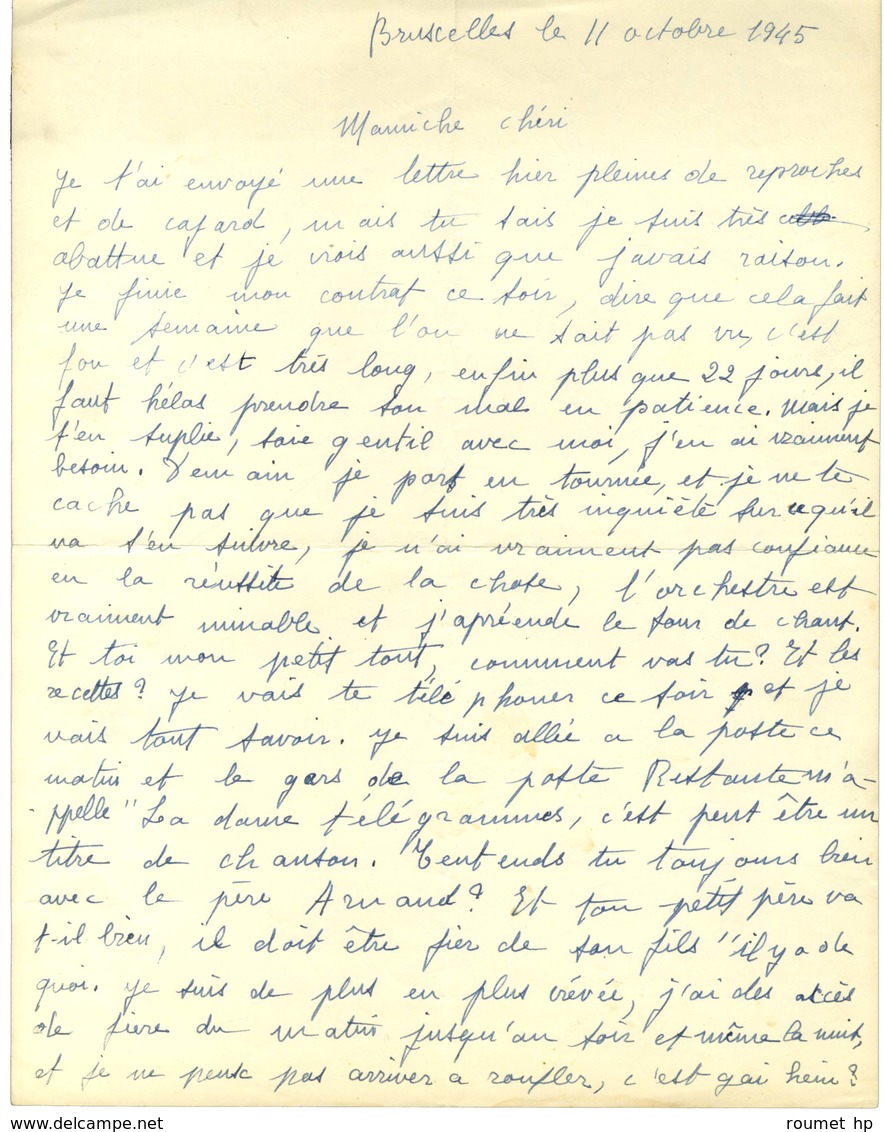 Bruscelles le 11 octobre 1945
Mamiche chéri
Je t'ai envoyé une lettre hier pleines de reproches
et de cafard, mais tu sais je suis très
abattue et je crois aussi que j'avais raison.
Je finie mon contrat ce soir, dire que cela fait
une semaine que l'on ne sait pas vu, c'est
fou et c'est très long, enfin plus que 22 jours, il
faut hélas prendre son mal en patience. Mais je
t'en suplie, soie gentil avec moi, j'en ai vraiment
besoin. Demain je pars en tournée, et je ne te
cache pas que je suis très inquiété sur ce qu'il
va s'en suivre, je n'ai vraiment pas confiance
en la réussite de la chose, l'orchestre est
vraiment minable et j'apréende le tour de chant.
Et toi mon petit tout, comment vas tu? Et les
recettes? Je vais te téléphoner ce soir et je
vais tout savoir. Je suis allée a la poste ce
matin et le gars de la poste Restante m'a-
ppelle "La dame télégrammes, c'est peut être un
titre de chanson. T'entends tu toujours bien
avec le père Arnaud? Et ton petit père va
t-il bien, il doit être fier de son fils "il y a de
quoi. Je suis de plus en plus crévée, j'ai des accès
de fievre du matin jusqu'au soir et même la nuit,
et je ne peux pas arriver a ronfler, c'est gai hein?
roumet hp